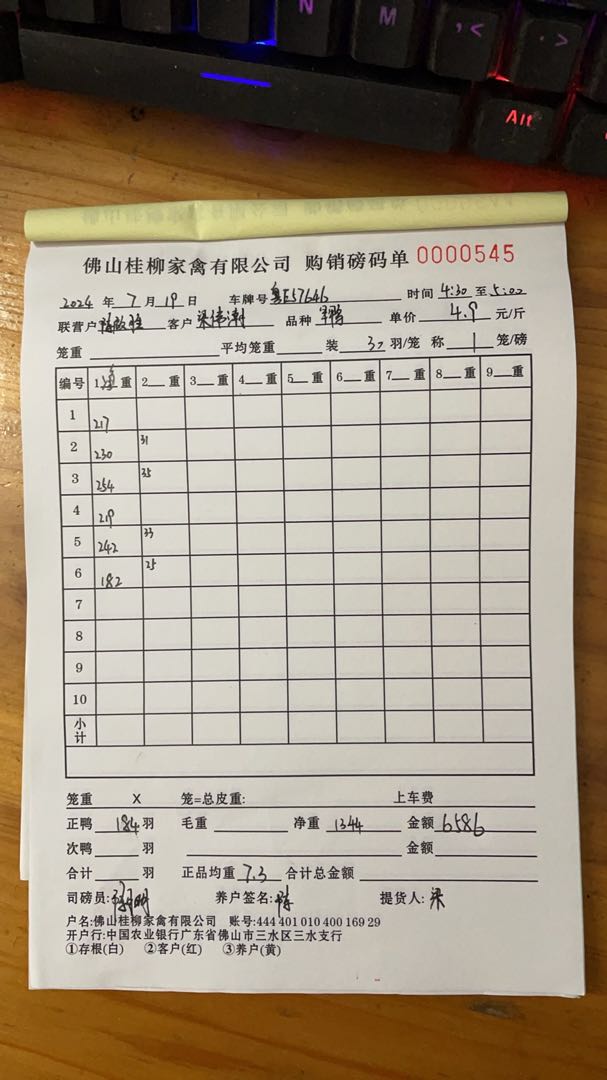 N M , < . >
Alt
佛山桂柳家禽有限公司 购销磅码单 0000545
2024 年 7 月 19 日 车牌号 粤E57646 时间 4:30 至 5:02
联营户 客户 梁伟潮 品种 单价 4.9 元/斤
笼重 平均笼重 装 30 羽/笼 称 1 笼/磅
编号 1 重 2 重 3 重 4 重 5 重 6 重 7 重 8 重 9 重
1 217
2 230 31
3 254 35
4 219
5 242 33
6 182 25
7
8
9
10
小计
笼重 X 笼=总皮重: 上车费
正鸭 184 羽 毛重 净重 1344 金额 6586
次鸭 羽 金额
合计 羽 正品均重 7.3 合计总金额
司磅员: 养户签名: 陈 提货人: 梁
户名:佛山桂柳家禽有限公司 账号:444 401 010 400 169 29
开户行:中国农业银行广东省佛山市三水区三水支行
①存根(白) ②客户(红) ③养户(黄)